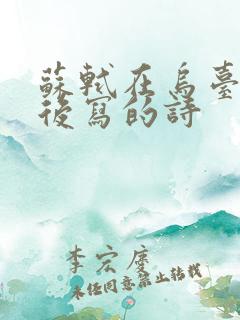 蘇軾在烏臺
後寫的詩
李宏慶
未經同意禁止轉載